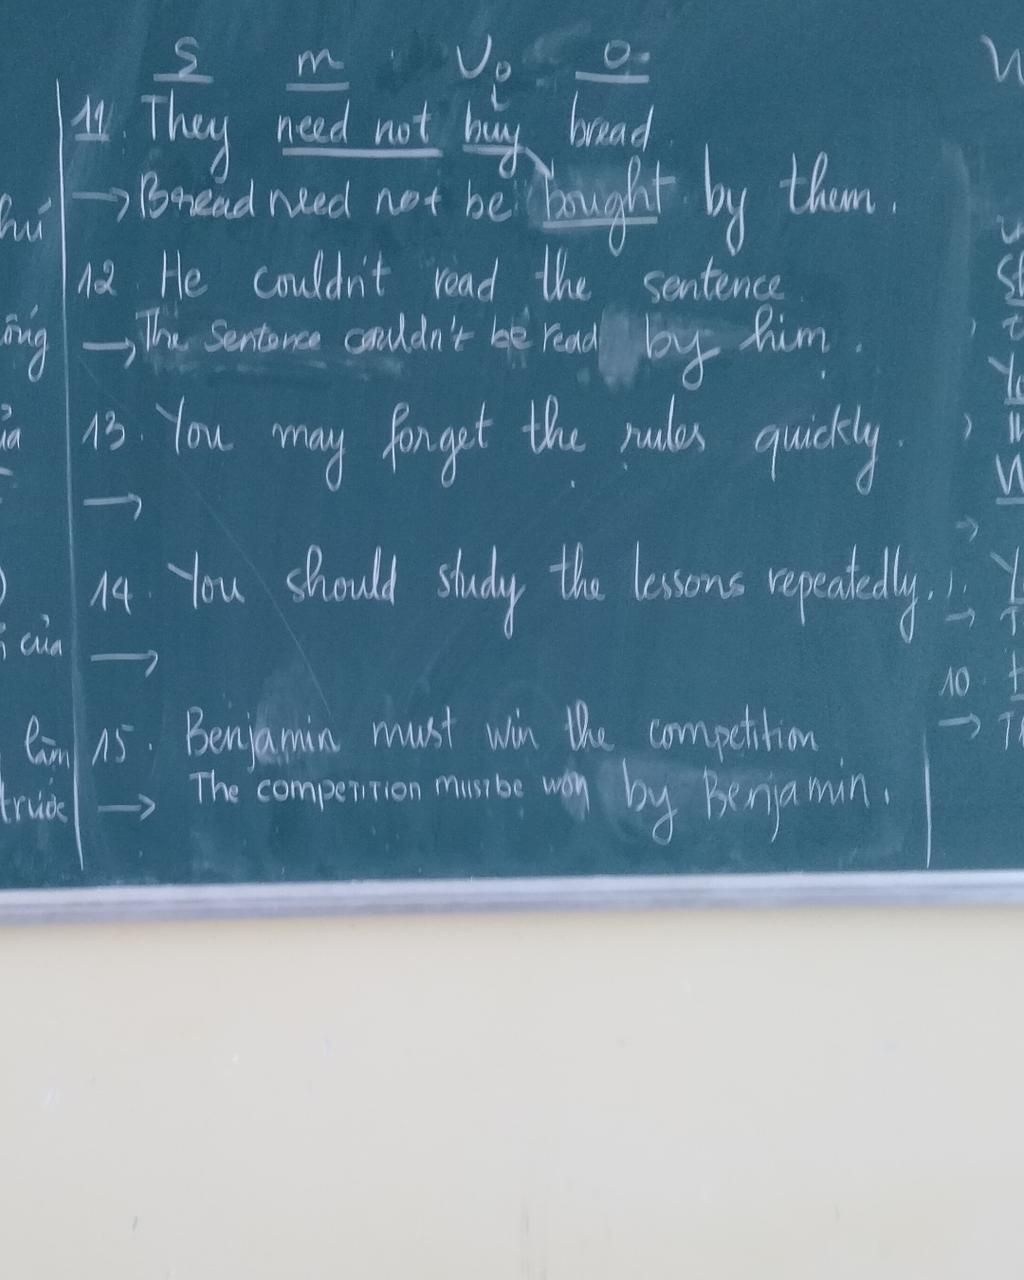 S m V₀ O
11. They need not buy bread
→ Bread need not be bought by them.
12. He couldn't read the sentence.
→ The sentence couldn't be read by him.
13. You may forget the rules quickly.
→
14. You should study the lessons repeatedly.
→
15. Benjamin must win the competition
→ The competition must be won by Benjamin.
của
làm
trước
10.